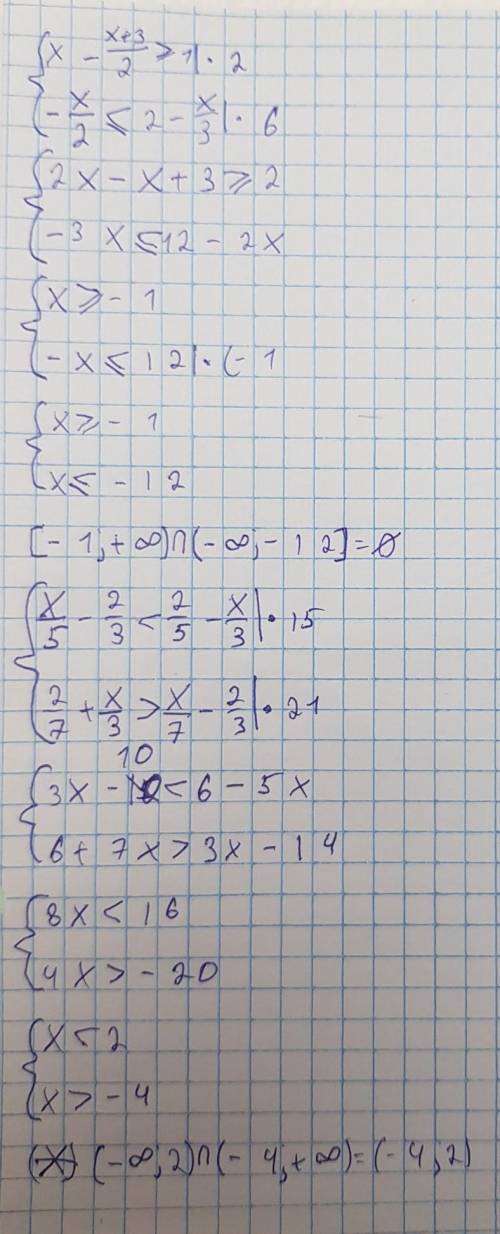 x - (x+3)/2 ⩾ 1 | · 2
-x/2 ⩽ 2 - x/3 | · 6
2x - x + 3 ⩾ 2
-3x ⩽ 12 - 2x
x ⩾ -1
-x ⩽ 12 | · (-1
x ⩾ -1
x ⩽ -12
[-1; +∞) ∩ (-∞; -12] = ∅
x/5 - 2/3 < 2/5 - x/3 | · 15
2/7 + x/3 > x/7 - 2/3 | · 21
3x - 10 < 6 - 5x
6 + 7x > 3x - 14
8x < 16
4x > -20
x < 2
x > -4
(-∞; 2) ∩ (-4; +∞) = (-4; 2)